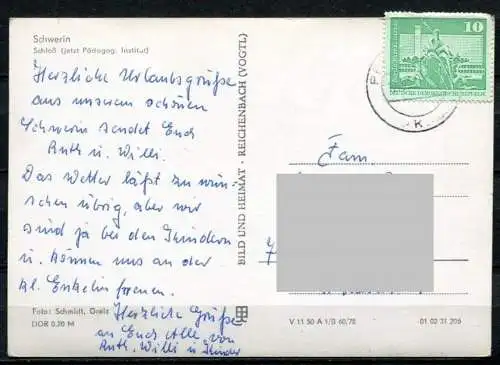 Schwerin
Schloß (jetzt Pädagog. Institut)
Herzliche Urlaubsgrüße
aus unserem schönen
Schwerin sendet Euch
Ruth u. Willi.
Das Wetter läßt zu wün-
schen übrig, aber wir
sind ja bei den Kindern
u. können uns an der
kl. Enkelin freuen.
Foto: Schmidt, Greiz
DDR 0,20 M
Herzliche Grüße
an Euch Alle von
Ruth, Willi u. Kinder
BILD UND HEIMAT · REICHENBACH (VOGTL)
10
DEUTSCHE DEMOKRATISCHE REPUBLIK
Fam.
V 11 50 A 1/B 60/78
01 02 31 205